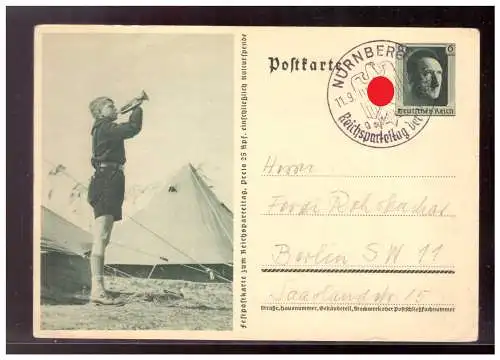 Postkarte
NÜRNBERG
11.9.
Reichsparteitag der
6
Deutsches Reich
Festpostkarte zum Reichsparteitag. Preis 25 Rpf. einschließlich Kulturspende
Herrn
Berlin SW 11
Saarlandstr 15
Straße, Hausnummer, Gebäudeteil, Stockwerk oder Postschließfachnummer